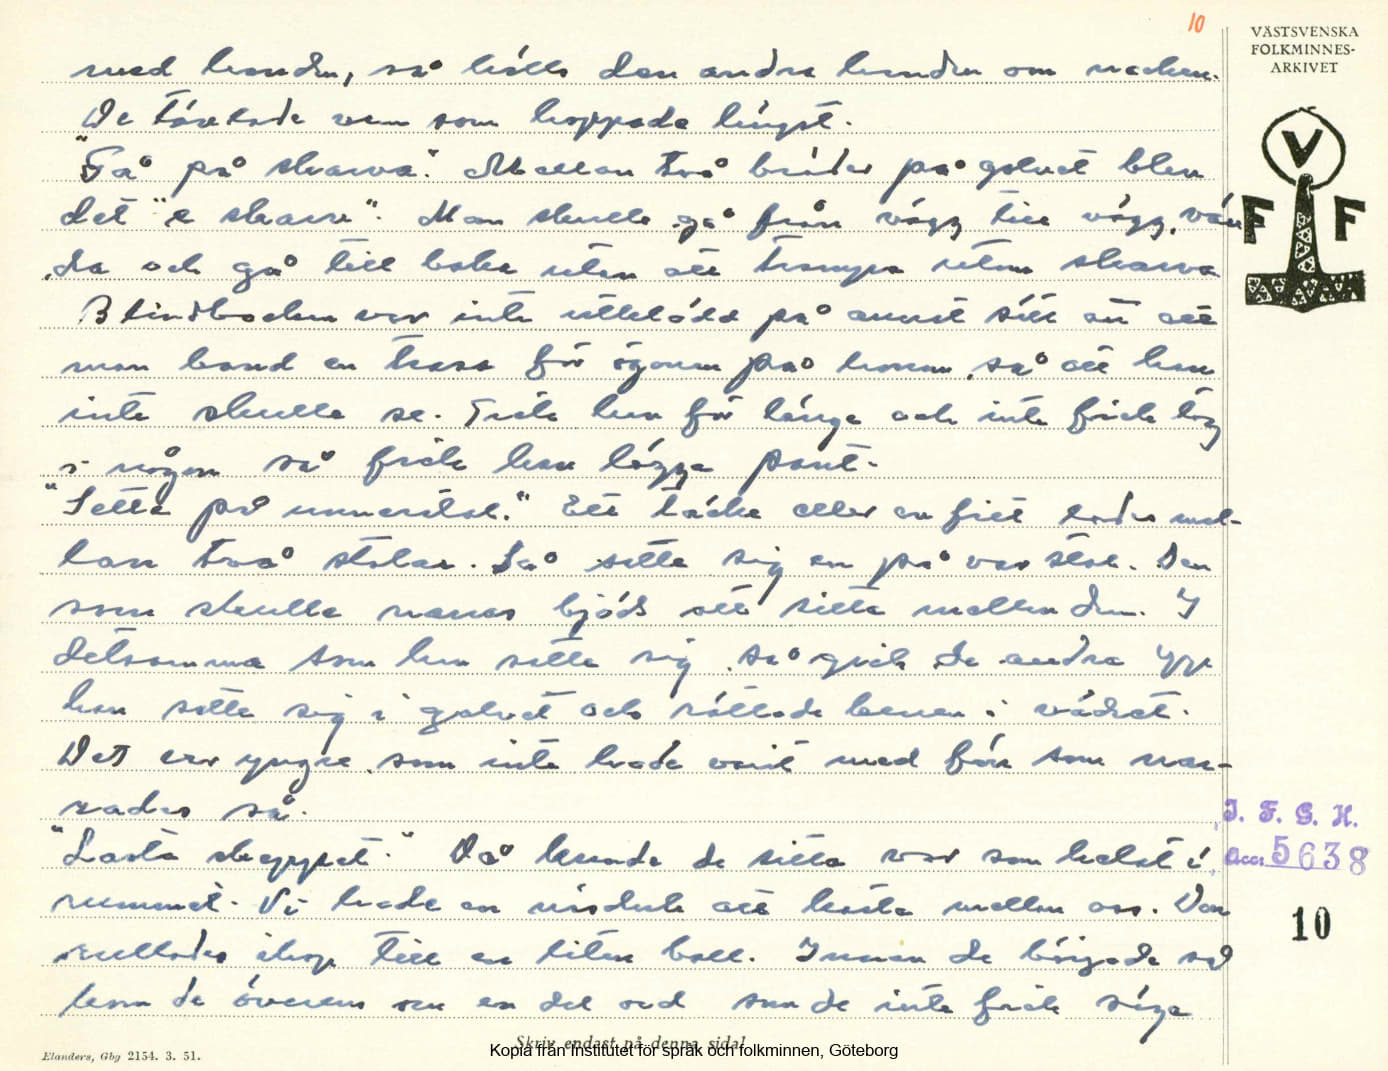 10
VÄSTSVENSKA
FOLKMINNES-
ARKIVET
V
F F
med handen, så hålls den andra handen om nacken.
De tävlade vem som hoppade längst.
"Gå på skarva". Mellan två bräder på golvet blev
det "e skarv". Man skulle gå från vägg till vägg, vän
da och gå till baka utan att trampa utom skarva
Blindbocken var inte utklädd på annat sätt än att
man band en trasa för ögonen på honom, så att han
inte skulle se. Gick han för länge och inte fick tag
i någon så fick han lägga pant.
"Sette på Ett täcke eller en filt lades mel-
lan två stolar. Så satte sig en på var stol. Den
som skulle narras bjöds att sitta mellan dem. I
detsamma som han satte sig, så gick de andra upp
han satte sig i golvet och rättade benen i vädret.
Det var yngre, som inte hade varit med förr som nar-
rades så.
"Lasta skeppet." Då kunde de sitta var som helst i
rummet. Vi hade en näsduk att kasta mellan oss. Den
rullades ihop till en liten boll. Innan de började så
kom de överens om en del ord som de inte fick säga
I. F. G. H.
Acc. 5638
10
Elanders, Gbg 2154. 3. 51.
Skriv endast på denna sida!
Kopia från Institutet för språk och folkminnen, Göteborg